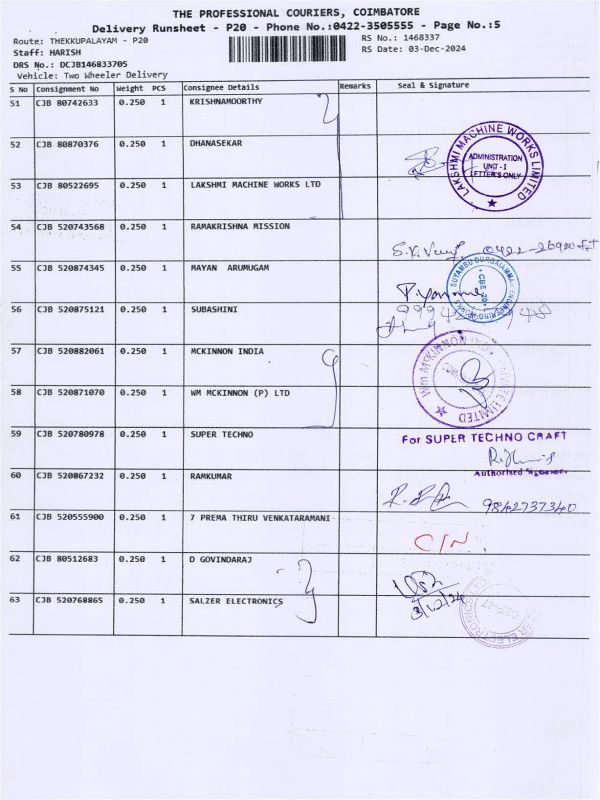 THE PROFESSIONAL COURIERS, COIMBATORE
Delivery Runsheet - P20 - Phone No.:0422-3505555 - Page No.:5
Route: THEKKUPALAYAM - P20 RS No.: 1468337
Staff: HARISH RS Date: 03-Dec-2024
DRS No.: DCJB146833705
Vehicle: Two Wheeler Delivery
S No Consignment No Weight PCS Consignee Details Remarks Seal & Signature
51 CJB 80742633 0.250 1 KRISHNAMOORTHY
52 CJB 80870376 0.250 1 DHANASEKAR
LAKSHMI MACHINE WORKS LIMITED
ADMINISTRATION
UNIT-I
LETTER'S ONLY
53 CJB 80522695 0.250 1 LAKSHMI MACHINE WORKS LTD
54 CJB 520743568 0.250 1 RAMAKRISHNA MISSION
55 CJB 520874345 0.250 1 MAYAN ARUMUGAM
SUYAMBU DURGAIAMMAN ENGINEERING WORKS
56 CJB 520875121 0.250 1 SUBASHINI
57 CJB 520882061 0.250 1 MCKINNON INDIA
58 CJB 520871070 0.250 1 WM MCKINNON (P) LTD
59 CJB 520780978 0.250 1 SUPER TECHNO For SUPER TECHNO CRAFT
Authorised Signatory
60 CJB 520867232 0.250 1 RAMKUMAR 9842737340
61 CJB 520555900 0.250 1 7 PREMA THIRU VENKATARAMANI
C/N
62 CJB 80512683 0.250 1 D GOVINDARAJ
63 CJB 520768865 0.250 1 SALZER ELECTRONICS 3/12/24